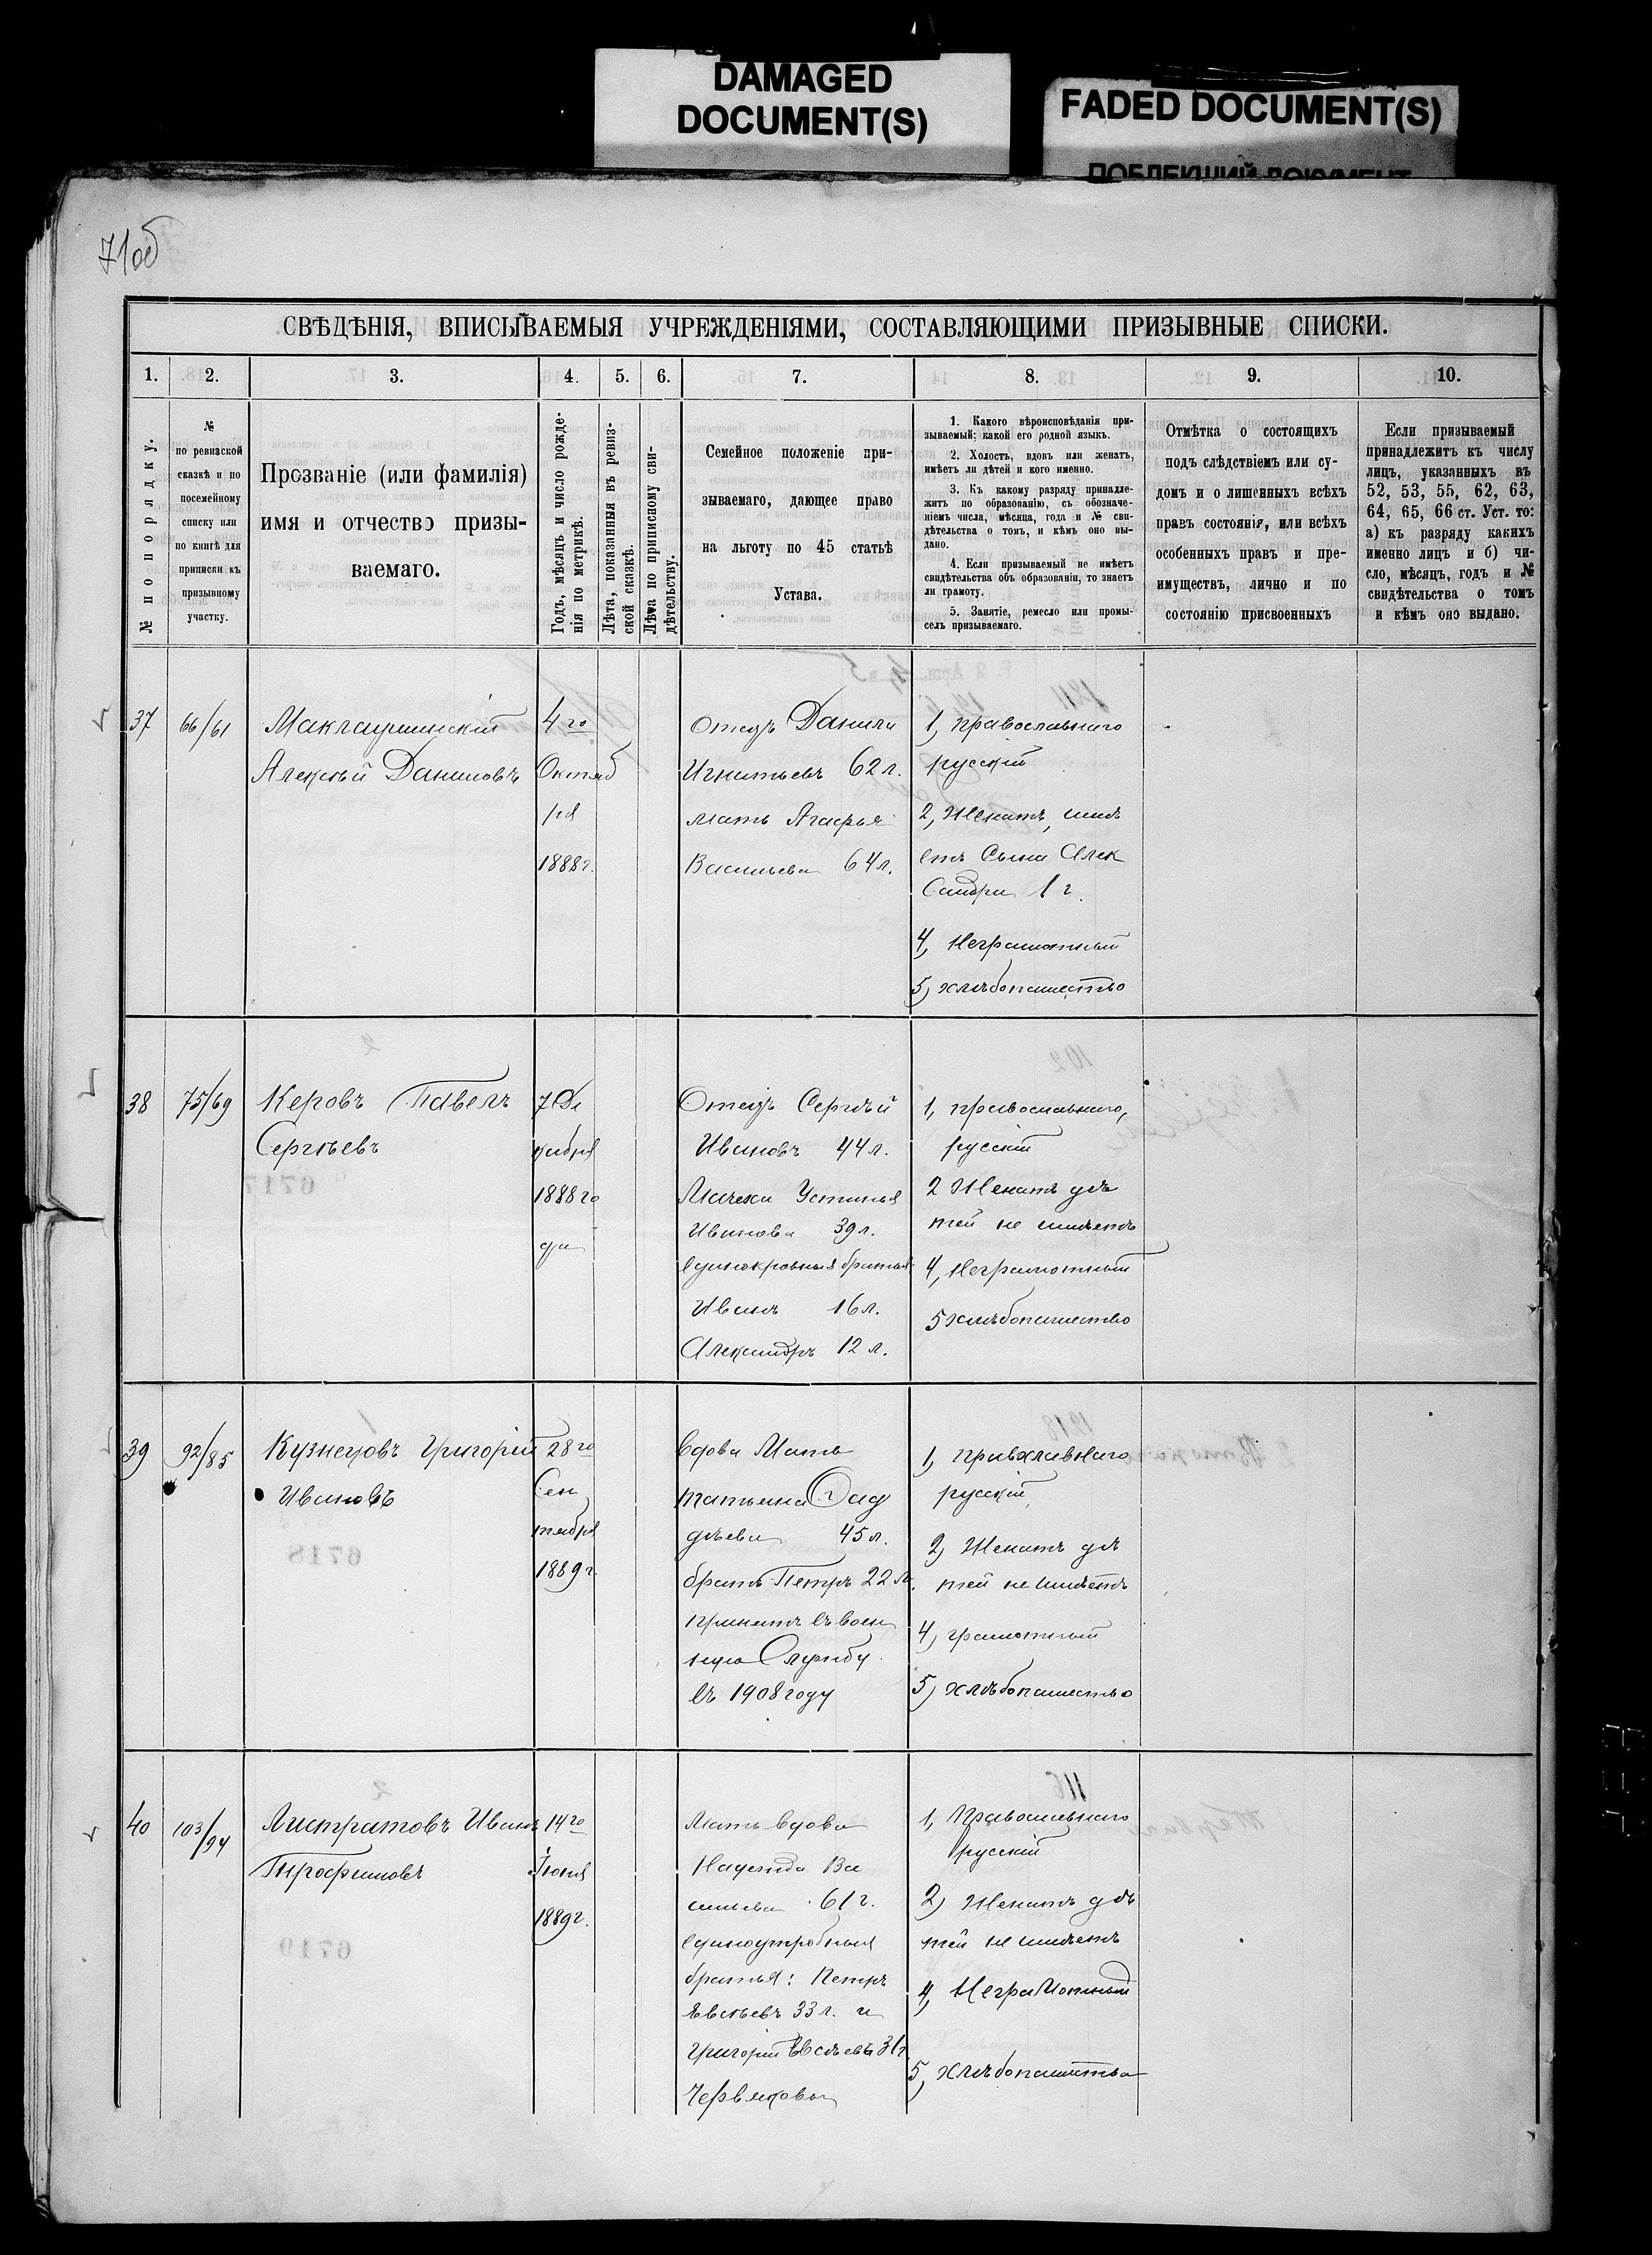 DAMAGED
DOCUMENT(S)
FADED DOCUMENT(S)
ПОБЛЕКШИЙ ДОКУМЕНТ
71об
СВѢДѢНІЯ, ВПИСЫВАЕМЫЯ УЧРЕЖДЕНІЯМИ, СОСТАВЛЯЮЩИМИ ПРИЗЫВНЫЕ СПИСКИ.
1. 2. 3. 4. 5. 6. 7. 8. 9. 10.
№ по порядку.
№
по ревизской
сказкѣ и по
посемейному
списку или
по книгѣ для
приписки къ
призывному
участку.
Прозваніе (или фамилія)
имя и отчество призы-
ваемаго.
Годъ, мѣсяцъ и число рожде-
нія по метрикѣ.
Лѣта, показанныя въ ревиз-
ской сказкѣ.
Лѣта по приписному сви-
дѣтельству.
Семейное положеніе при-
зываемаго, дающее право
на льготу по 45 статьѣ
Устава.
1. Какого вѣроисповѣданія при-
зываемый; какой его родной языкъ.
2. Холостъ, вдовъ или женатъ,
имѣетъ ли дѣтей и кого именно.
3. Къ какому разряду принадле-
житъ по образованію, съ обозначе-
ніемъ числа, мѣсяца, года и № сви-
дѣтельства о томъ, и кѣмъ оно вы-
дано.
4. Если призываемый не имѣетъ
свидѣтельства объ образованіи, то знаетъ
ли грамоту.
5. Занятіе, ремесло или промы-
селъ призываемаго.
Отмѣтка о состоящихъ
подъ слѣдствіемъ или су-
домъ и о лишенныхъ всѣхъ
правъ состоянія, или всѣхъ
особенныхъ правъ и пре-
имуществъ, лично и по
состоянію присвоенныхъ
Если призываемый
принадлежитъ къ числу
лицъ, указанныхъ въ
52, 53, 55, 62, 63,
64, 65, 66 ст. Уст. то:
а) къ разряду какихъ
именно лицъ и б) чи-
сло, мѣсяцъ, годъ и №
свидѣтельства о томъ
и кѣмъ оно выдано.
37
66/61
Алексѣй Даниловъ
4го
Октяб
ря
1888г.
отецъ Данила
Игнатьевъ 62л.
мать Агафья
Васильева 64л.
1, православнаго
русскій
2, Женатъ, имѣ
етъ Сына Алек
Сандра 1 г.
4, Неграмотный
5, хлѣбопашество
38
75/69
Керовъ Павелъ
Сергѣевъ
7 Де
кабря
1888 го
да
Отецъ Сергѣй
Ивановъ 44л.
Мачеха Устинья
Иванова 39л.
единокровныя братья
Иванъ 16л.
Александръ 12 л.
1, православнаго,
русскій
2 Женатъ дѣ
тей не имѣетъ
4, Неграмотный
5 хлѣбопашество
39
92/85
Кузнецовъ Григорій
Ивановъ
28го
Сен
тября
1889г.
вдова Мать
татьяна Фад
дѣева 45л.
братъ Петръ 22 л.
принятъ въ воен
ную Службу
въ 1908 году
1, Православнаго
русскій
2, Женатъ дѣ
тей не имѣетъ
4, грамотный
5, хлѣбопашество
40
103/94
Листратовъ Иванъ
Трофимовъ
14го
Іюня
1889г.
Мать вдова
Надежда Ва
сильева 61г.
единоутробныя
братья: Петръ
Евсѣевъ 33л. и
Григорій Евсѣевъ 31г
Червяковы
1, Православнаго
русскій
2, Женатъ дѣ
тей не имѣетъ
4, Неграмотный
5, хлѣбопашество